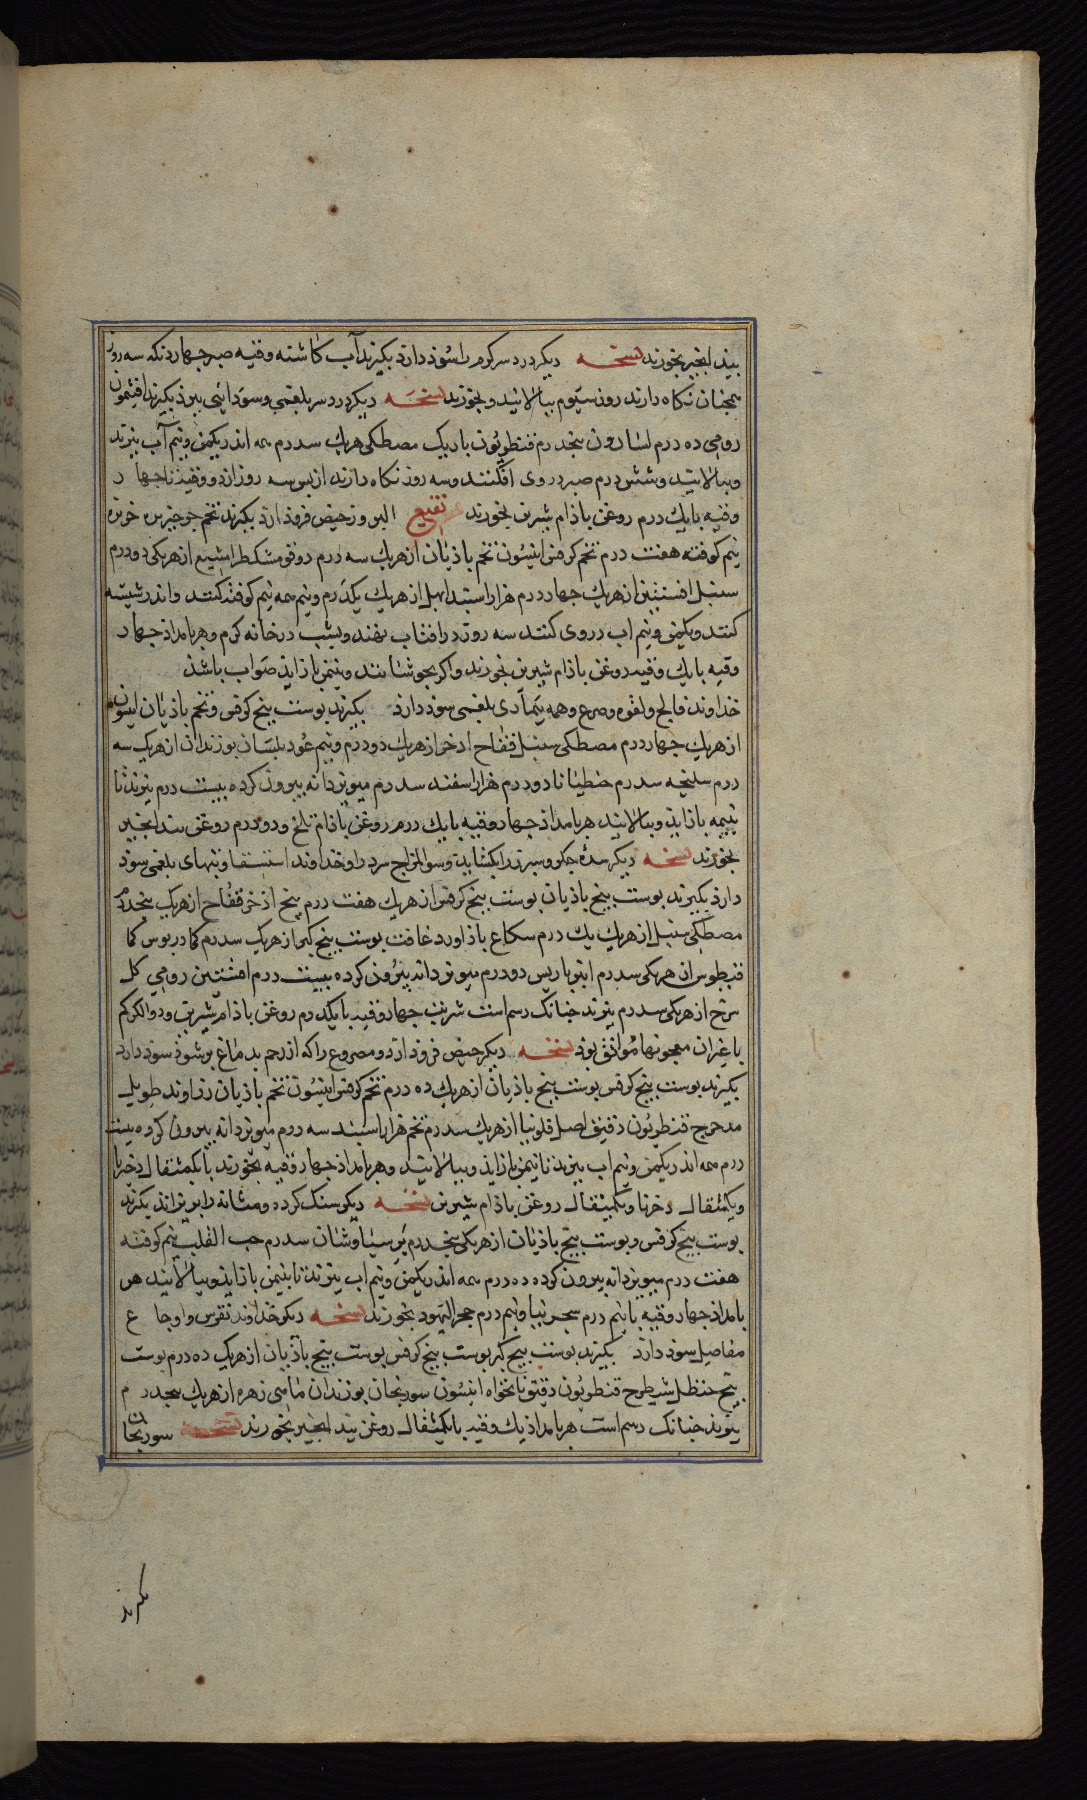 بیذ انجیر بخورند نسخه دیکر درد سر کرم را سوذ دارذ بکیرند آب کاشنه وقیه صبر چهار دنکه سه روز
همجنان نکاه دارند روز سیّوم ببالایند و بخورند نسخه دیکر درد سر بلغمی و سودایی ببرذ بکیرند افتیمون
رومی ده درم اسارون پنجدرم قنطوریون باریک مصطکی هریک سدرم همه اندر یکمن و نیم آب بپزند
و ببالایند و شش درم صبر در وی افکنند و سه روز نکاه دارند از بس سه روز از دو وقیه تا جهار
وقیه با یک درم روغن باذام شیرین بخورند نقیع البر و زحیض فروذ ارد بکیرند تخم جو جیزین خربزه
نیم کوفته هفت درم تخم کرفس انیسون تخم باذیان از هریک سه درم دوقو مشکطرامشیع از هریکی دودرم
سنبل افسنتین از هریک جهاردرم هزار اسبند ابهل از هریک یکدرم و نیم همه نیم کوفته کنند و اندر شیشه
کنند و یکمن و نیم اب در وی کنند سه روز در افتاب نهند و بشب در خانه کرم و هر بامداذ جهار
وقیه با یک وقیه روغن باذام شیرین بخورند و اکر بجوشانند و بنیمن باز ایذ صواب باشذ
خذاوند فالج و لقوه و صرع و همه بیمآری بلغمی سوذ دارذ بکیرند بوست بیخ کرفس و تخم باذیان انیسون
از هریک جهاردرم مصطکی سنبل فقاح اذخر از هریک دودرم و نیم عود بلسان بوزندان از هریک سه
درم سلیخه سدرم جنطیانا دودرم هزار اسفند سدرم میویز دانه بیرون کرده بیست درم بپزند تا
بنیمه باز ایذ و ببالایند هر بامداذ جهار وقیه با یک درم روغن باذام تلخ و دودرم روغن بید انجیر
بخورند نسخه دیکر سدهٔ جکر و سپرز را بکشاید و سوالمزاج سرد را و خداوند استسقا و تبهای بلغمی سوذ
دارذ بکیرند بوست بیخ باذیان بوست بیخ کرفس از هریک هفت درم بیخ اذخر فقاح از هریک بنجدرم
مصطکی سنبل از هریک یک درم شکاع باذاورد غافت بوست بیخ کبر از هریک سدرم کمادریوس کما
فیطوس از هریکی سدرم انبرباریس دودرم میویز دانه بیرون کرده بیست درم افسنتین رومی کل
سرخ از هریکی سدرم بپزند جنانک رسم است شربت جهار وقیه با یکدرم روغن باذام شیرین و دوالکرکم
یا غیر ان معجونها موافق بوذ نسخه دیکر حیض فروذ ارد و مصروع را که از رحم بدماغ برشوذ سوذ دارد
بکیرند بوست بیخ کرفس بوست بیخ باذیان از هریک ده درم تخم کرفس انیسون تخم باذیان زراوند طویل
مدحرج قنطوریون دقیق اصل قلونیا از هریک سدرم تخم هزار اسبند سه درم میویز دانه بیرون کرده بیست
درم همه اندر یکمن و نیم اب بپزند تا بنیمن باز ایذ و ببالایند و هر بامداذ جهار وقیه بخورند با یکمثقال دخرنا
و یکمثقال دخرنا و یکمثقال روغن باذام شیرین نسخه دیکر سنک کرده و مثانه را بریزاند بکیرند
بوست بیخ کرفس و بوست بیخ باذیان از هریکی بنجدرم پرسیاوشان سدرم حب القلت نیم کوفته
هفت درم میویز دانه بیرون کرده ده درم همه اندر یکمن و نیم اب بپزند تا بنیمن باز اید و ببالایند هر
بامداذ جهار وقیه با نیم درم سجرنیا و نیم درم حجر الیهود بخورند نسخه دیکر خداوند نقرس و اوجاع
مفاصل سوذ دارذ بکیرند بوست بیخ کبر بوست بیخ کرفس بوست بیخ باذیان از هریک ده درم بوست
بیخ حنظل شیطرج قنطوریون دقیق نانخواه انیسون سورنجان بوزندان ماهی زهره از هریک بنجدرم
بپزند جنانک رسم است هر بامداذ یک وقیه با یکمثقال روغن بید انجیر بخورند نسخه سورنجان
بکیرند